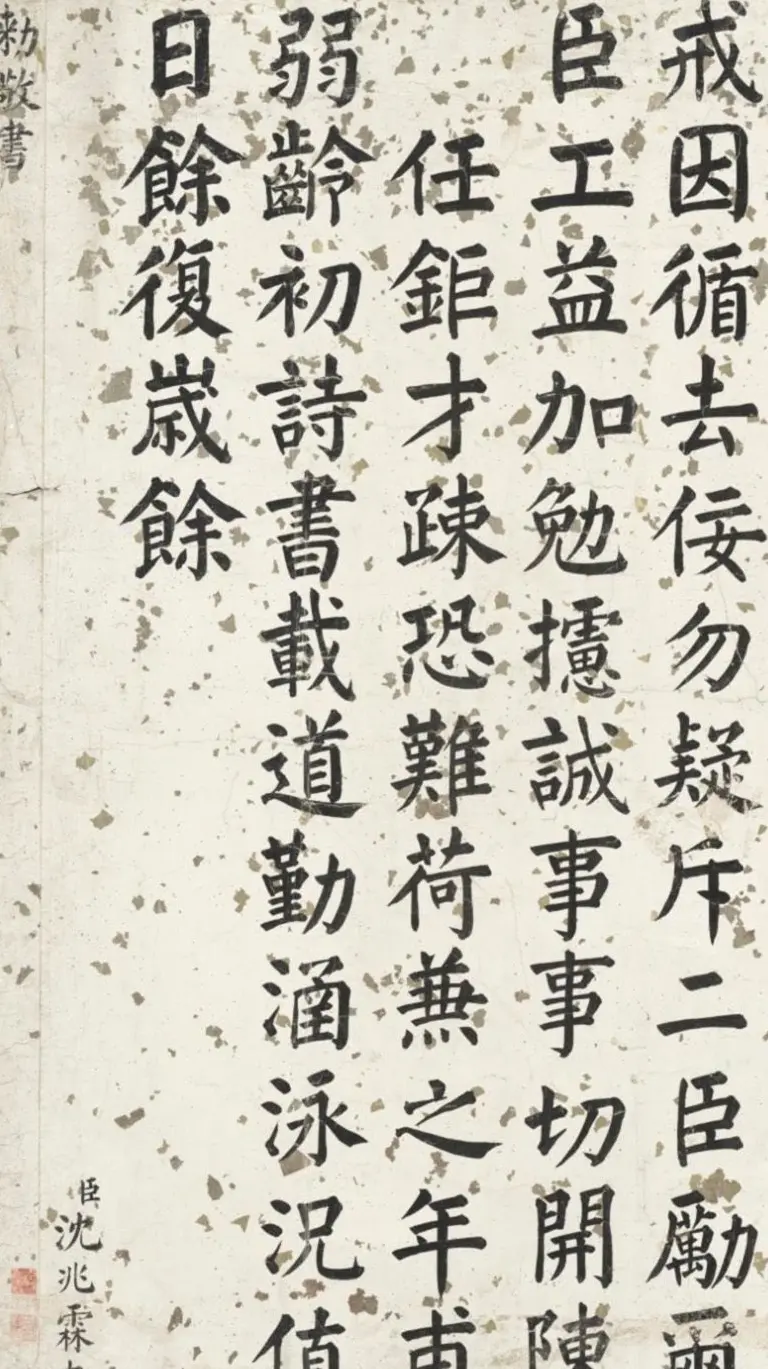 戒因循去佞勿疑斥二臣勵爾
臣工益加勉攄誠事事切開陳
任鉅才疎恐難荷兼之年甫
弱齡初詩書載道勤涵泳況值
日餘復歲餘
臣沈兆霖
敕敬書